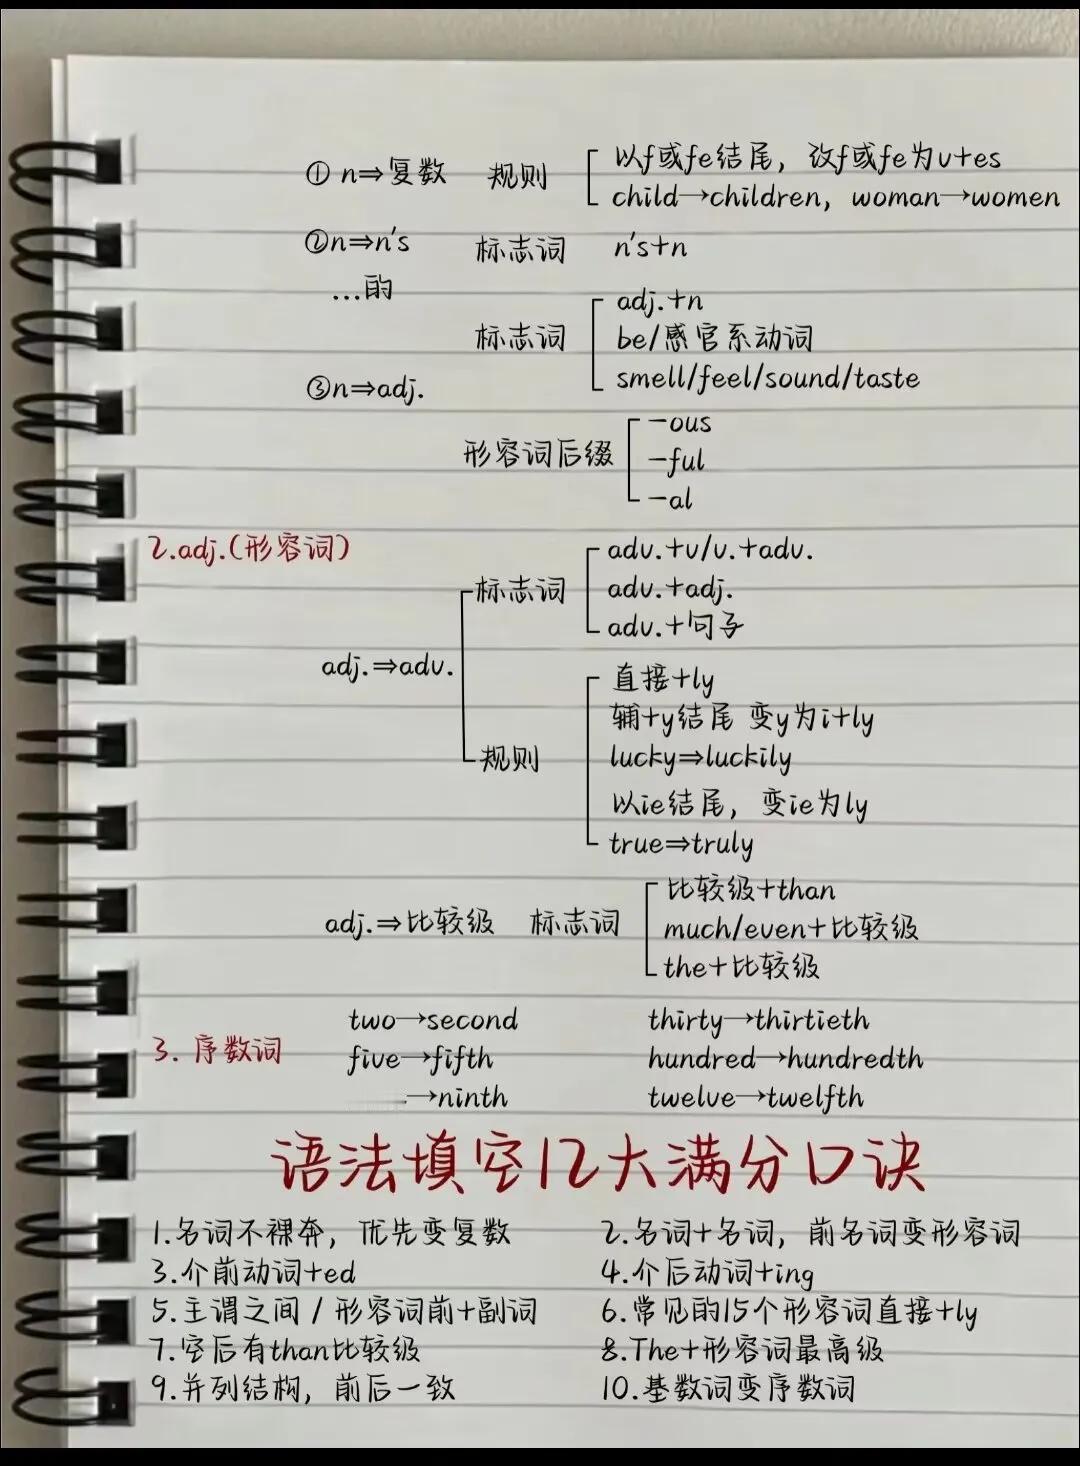 ① n⇒复数 规则 以f或fe结尾，改f或fe为v+es
child→children，woman→women
②n⇒n's 标志词 n's+n
...的
adj.+n
标志词 be/感官系动词
③n⇒adj. smell/feel/sound/taste
-ous
形容词后缀 -ful
-al
2.adj.(形容词)
adv.+v/v.+adv.
标志词 adv.+adj.
adv.+句子
adj.⇒adv.
直接+ly
辅+y结尾 变y为i+ly
规则 lucky⇒luckily
以ie结尾，变ie为ly
true⇒truly
比较级+than
adj.⇒比较级 标志词 much/even+比较级
the+比较级
two→second thirty→thirtieth
3. 序数词 five→fifth hundred→hundredth
→ninth twelve→twelfth
语法填空12大满分口诀
1.名词不裸奔，优先变复数 2.名词+名词，前名词变形容词
3.介前动词+ed 4.介后动词+ing
5.主谓之间/形容词前+副词 6.常见的15个形容词直接+ly
7.空后有than比较级 8.The+形容词最高级
9.并列结构，前后一致 10.基数词变序数词